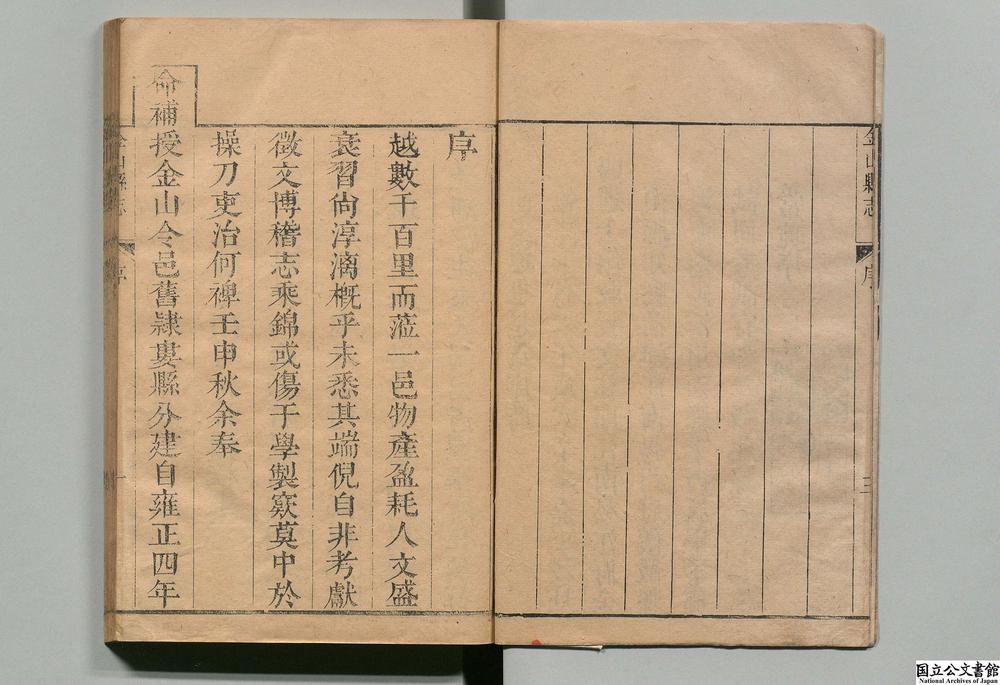 金山縣志
序
三
序
越數千百里而蒞一邑物產盈耗人文盛
衰習尙淳漓概乎未悉其端倪自非考獻
徵文博稽志乘錦或傷于學製窾莫中於
操刀吏治何裨壬申秋余奉
命補授金山令邑舊隷婁縣分建自雍正四年
金山縣志
序
一
国立公文書館
National Archives of Japan